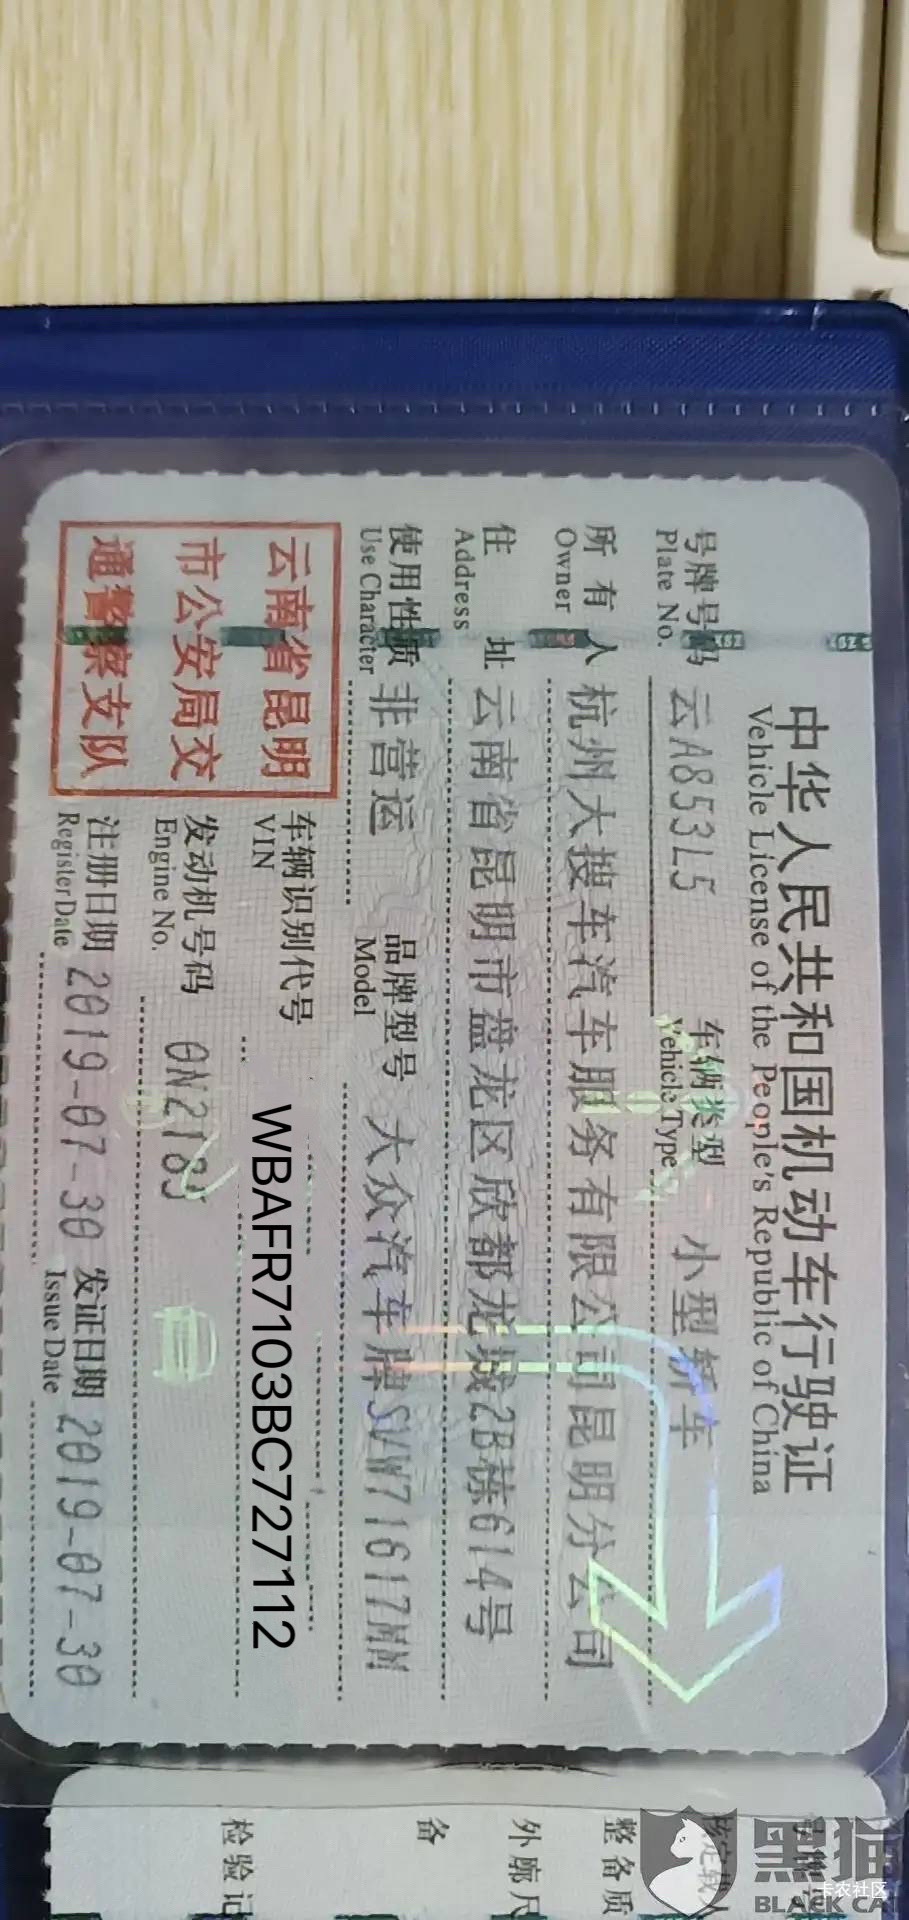 中华人民共和国机动车行驶证
Vehicle License of the People's Republic of China
号牌号码 云A853L5 车辆类型 小型轿车
Plate No. Vehicle Type
所有人 杭州大搜车汽车服务有限公司昆明分公司
Owner
住址 云南省昆明市盘龙区欣都龙城2B栋614号
Address
使用性质 非营运 品牌型号 大众汽车牌SVW71617MM
Use Character Model
云南省昆明
市公安局交
通警察支队
车辆识别代号 WBAFR7103BC727112
VIN
发动机号码
Engine No.
注册日期 2019-07-30 发证日期 2019-07-30
Register Date Issue Date
整备质
外廓尺
备
检验记
黑猫
BLACK CA
卡农社区